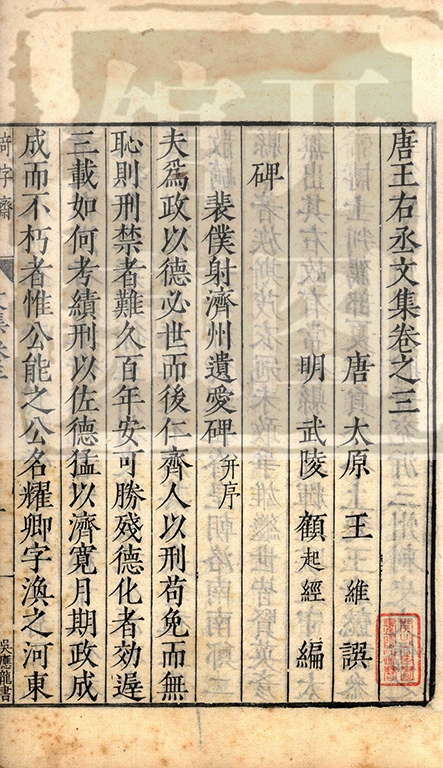 唐王右丞文集卷之三
唐太原王維譔
明武陵顧起經編
碑
裴僕射濟州遺愛碑并序
夫爲政以德必世而後仁齊人以刑苟免而無
恥則刑禁者難久百年安可勝殘德化者効遲
三載如何考績刑以佐德猛以濟寬月期政成
成而不朽者惟公能之公名耀卿字渙之河東
奇字齋
文集卷三
吳應龍書